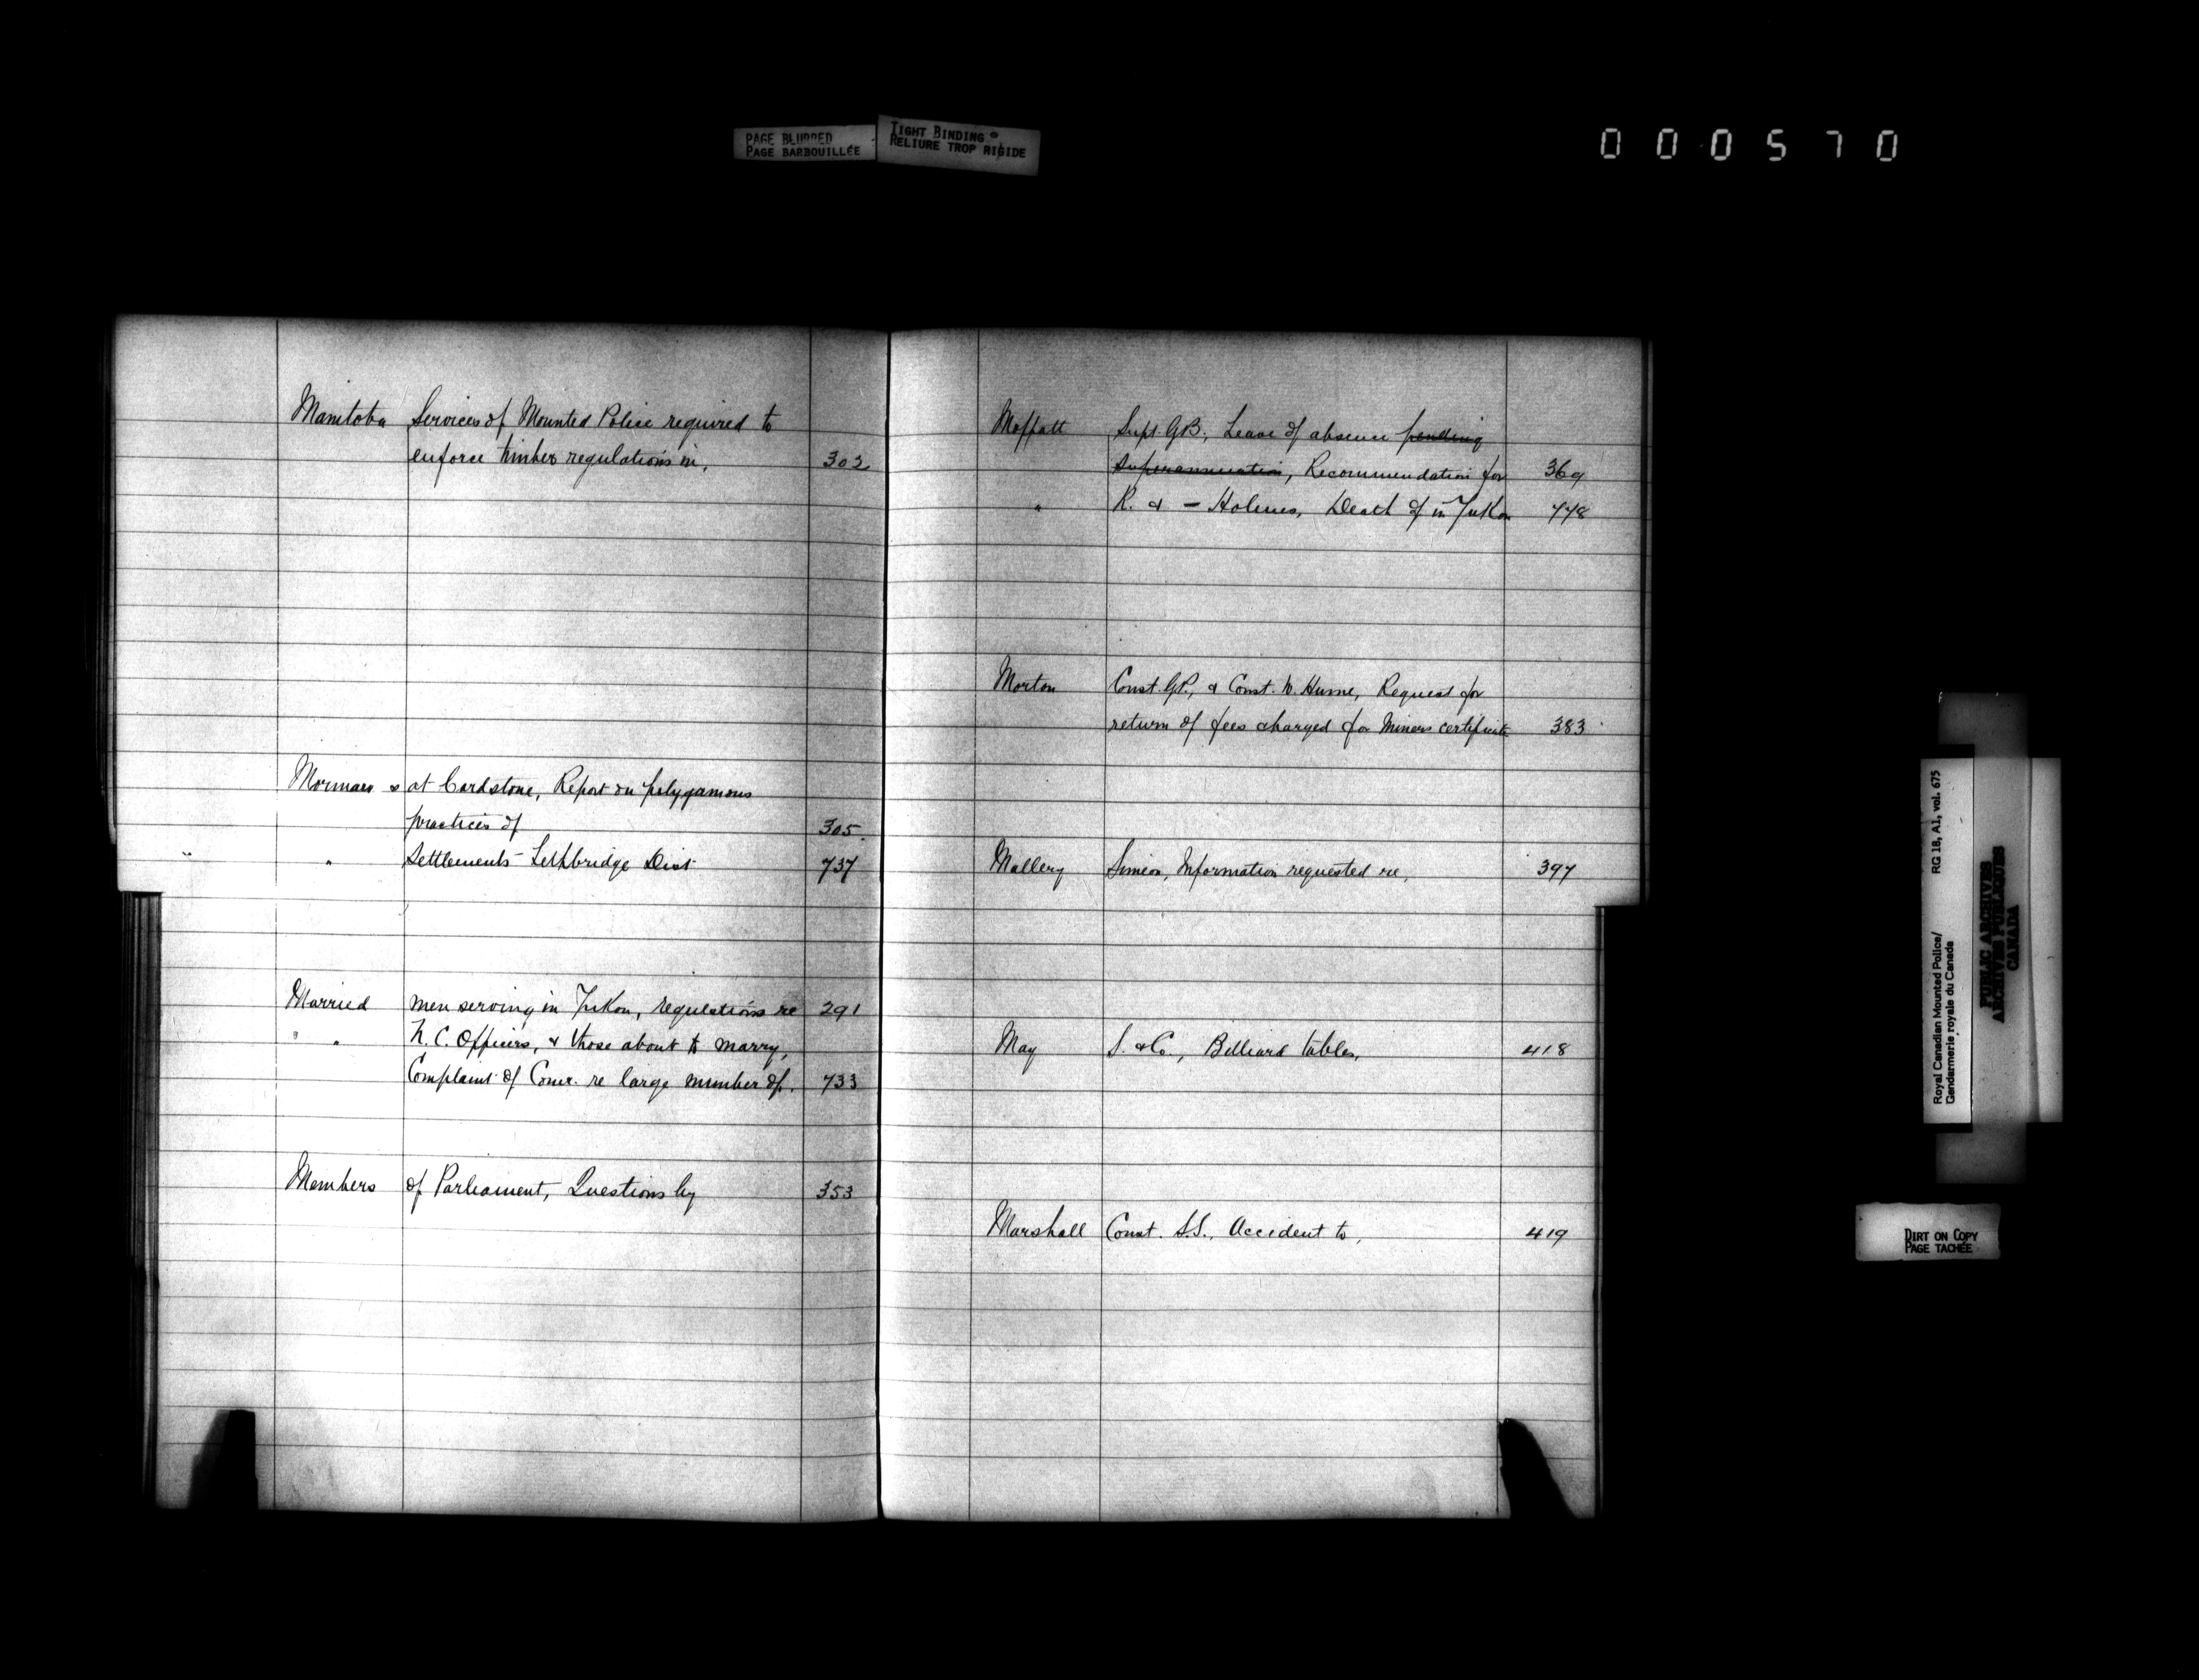 PAGE BLURRED
PAGE BARBOUILLÉE
TIGHT BINDING
RELIURE TROP RIGIDE
000570
Manitoba Services of Mounted Police required to
enforce timber regulations in, 302
Mormans at Cardstone, Report on polygamous
practices of 305
" Settlements Lethbridge Dist 737
Married men serving in Yukon, regulations re 291
" " N.C. Officers, & those about to marry,
Complaint of Comr. re large number of. 733
Members of Parliament, Questions by 353
Moffatt Supt. G.B., Leave of absence pending
superannuation, Recommendation for 369
" R. & — Holmes, Death of in Yukon 448
Morton Const. G.P., & Const. W. Hume, Request for
return of fees charged for Miners certificate 383
Mallery Simeon, Information requested re, 397
May S. & Co., Billiard tables, 418
Marshall Const. S.S., Accident to, 419
Royal Canadian Mounted Police/ RG 18, A1, vol. 675
Gendarmerie royale du Canada
PUBLIC ARCHIVES
ARCHIVES PUBLIQUES
CANADA
DIRT ON COPY
PAGE TACHÉE